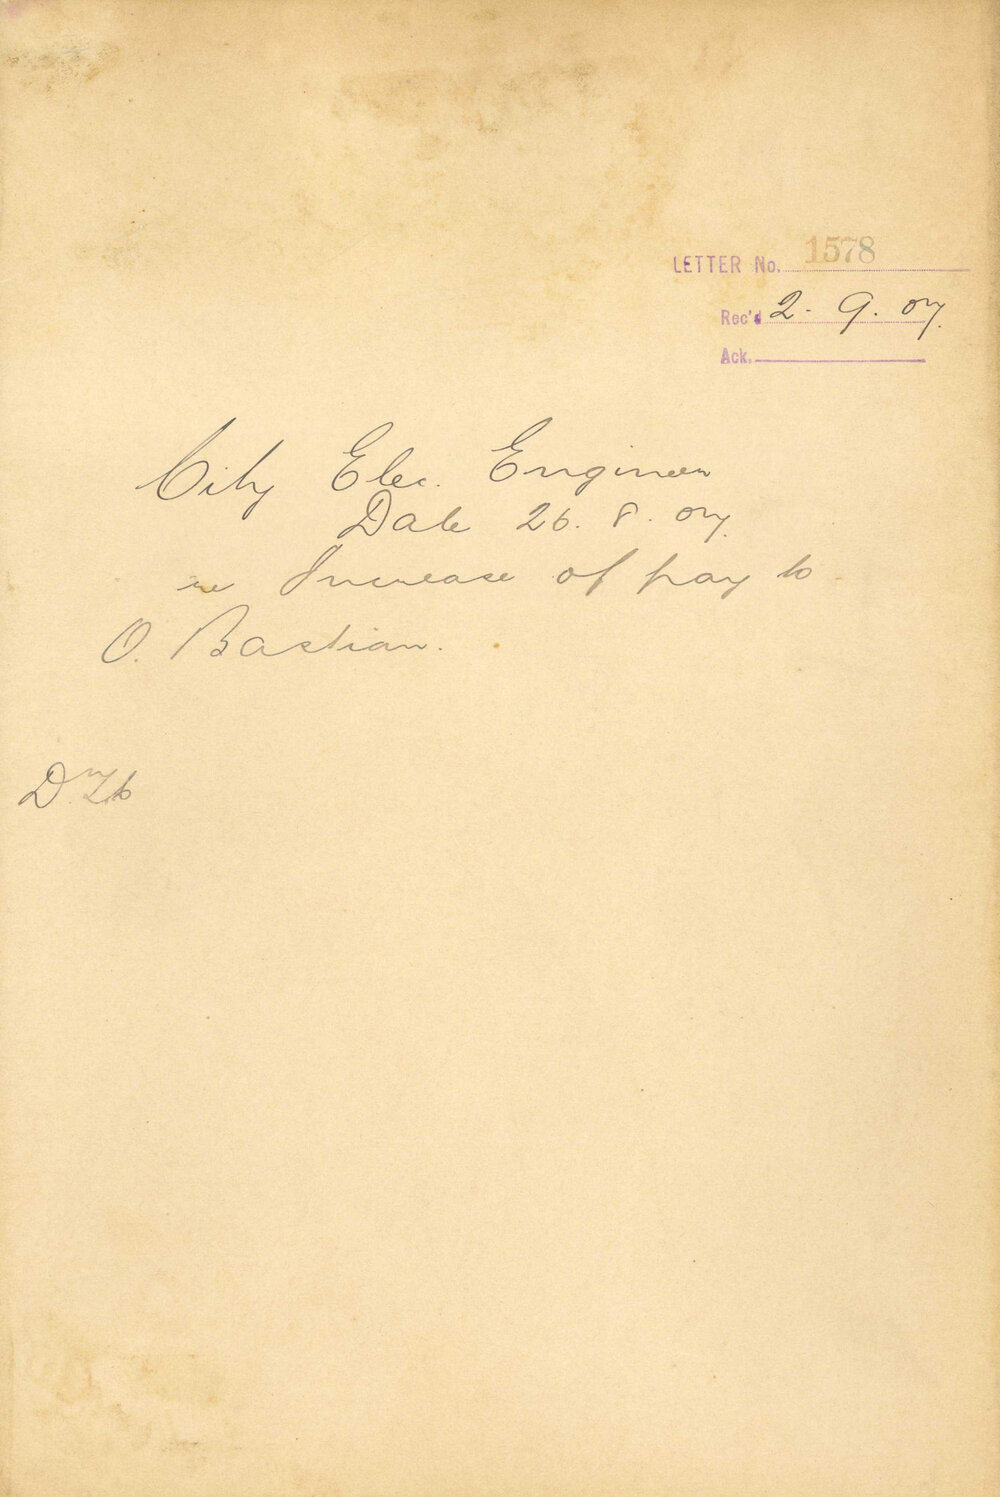 LETTER No. 1578
Rec'd 2. 9. 07.
Ack.
City Elec. Engineer
Date 26. 8. 07.
re Increase of pay to
O. Bastian.